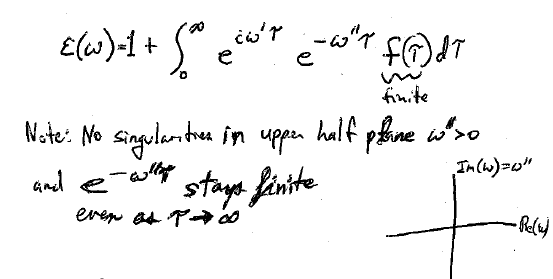 ε(ω)=1 + ∫₀^∞ e^{iω'τ} e^{-ω''τ} f(τ) dτ
finite
Note: No singularities in upper half plane ω''>0
and e^{-ω''τ} stays finite
even as τ → ∞
Im(ω)=ω''
Re(ω)